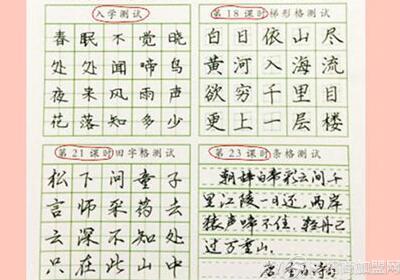 入学测试
春眠不觉晓
处处闻啼鸟
夜来风雨声
花落知多少
第18课时 梯形格测试
白日依山尽
黄河入海流
欲穷千里目
更上一层楼
第21课时 田字格测试
松下问童子
言师采药去
云深不知处
只在此山中
第23课时 条格测试
朝辞白帝彩云间千
里江陵一日还,两岸
猿声啼不住,轻舟已
过万重山。
加盟网